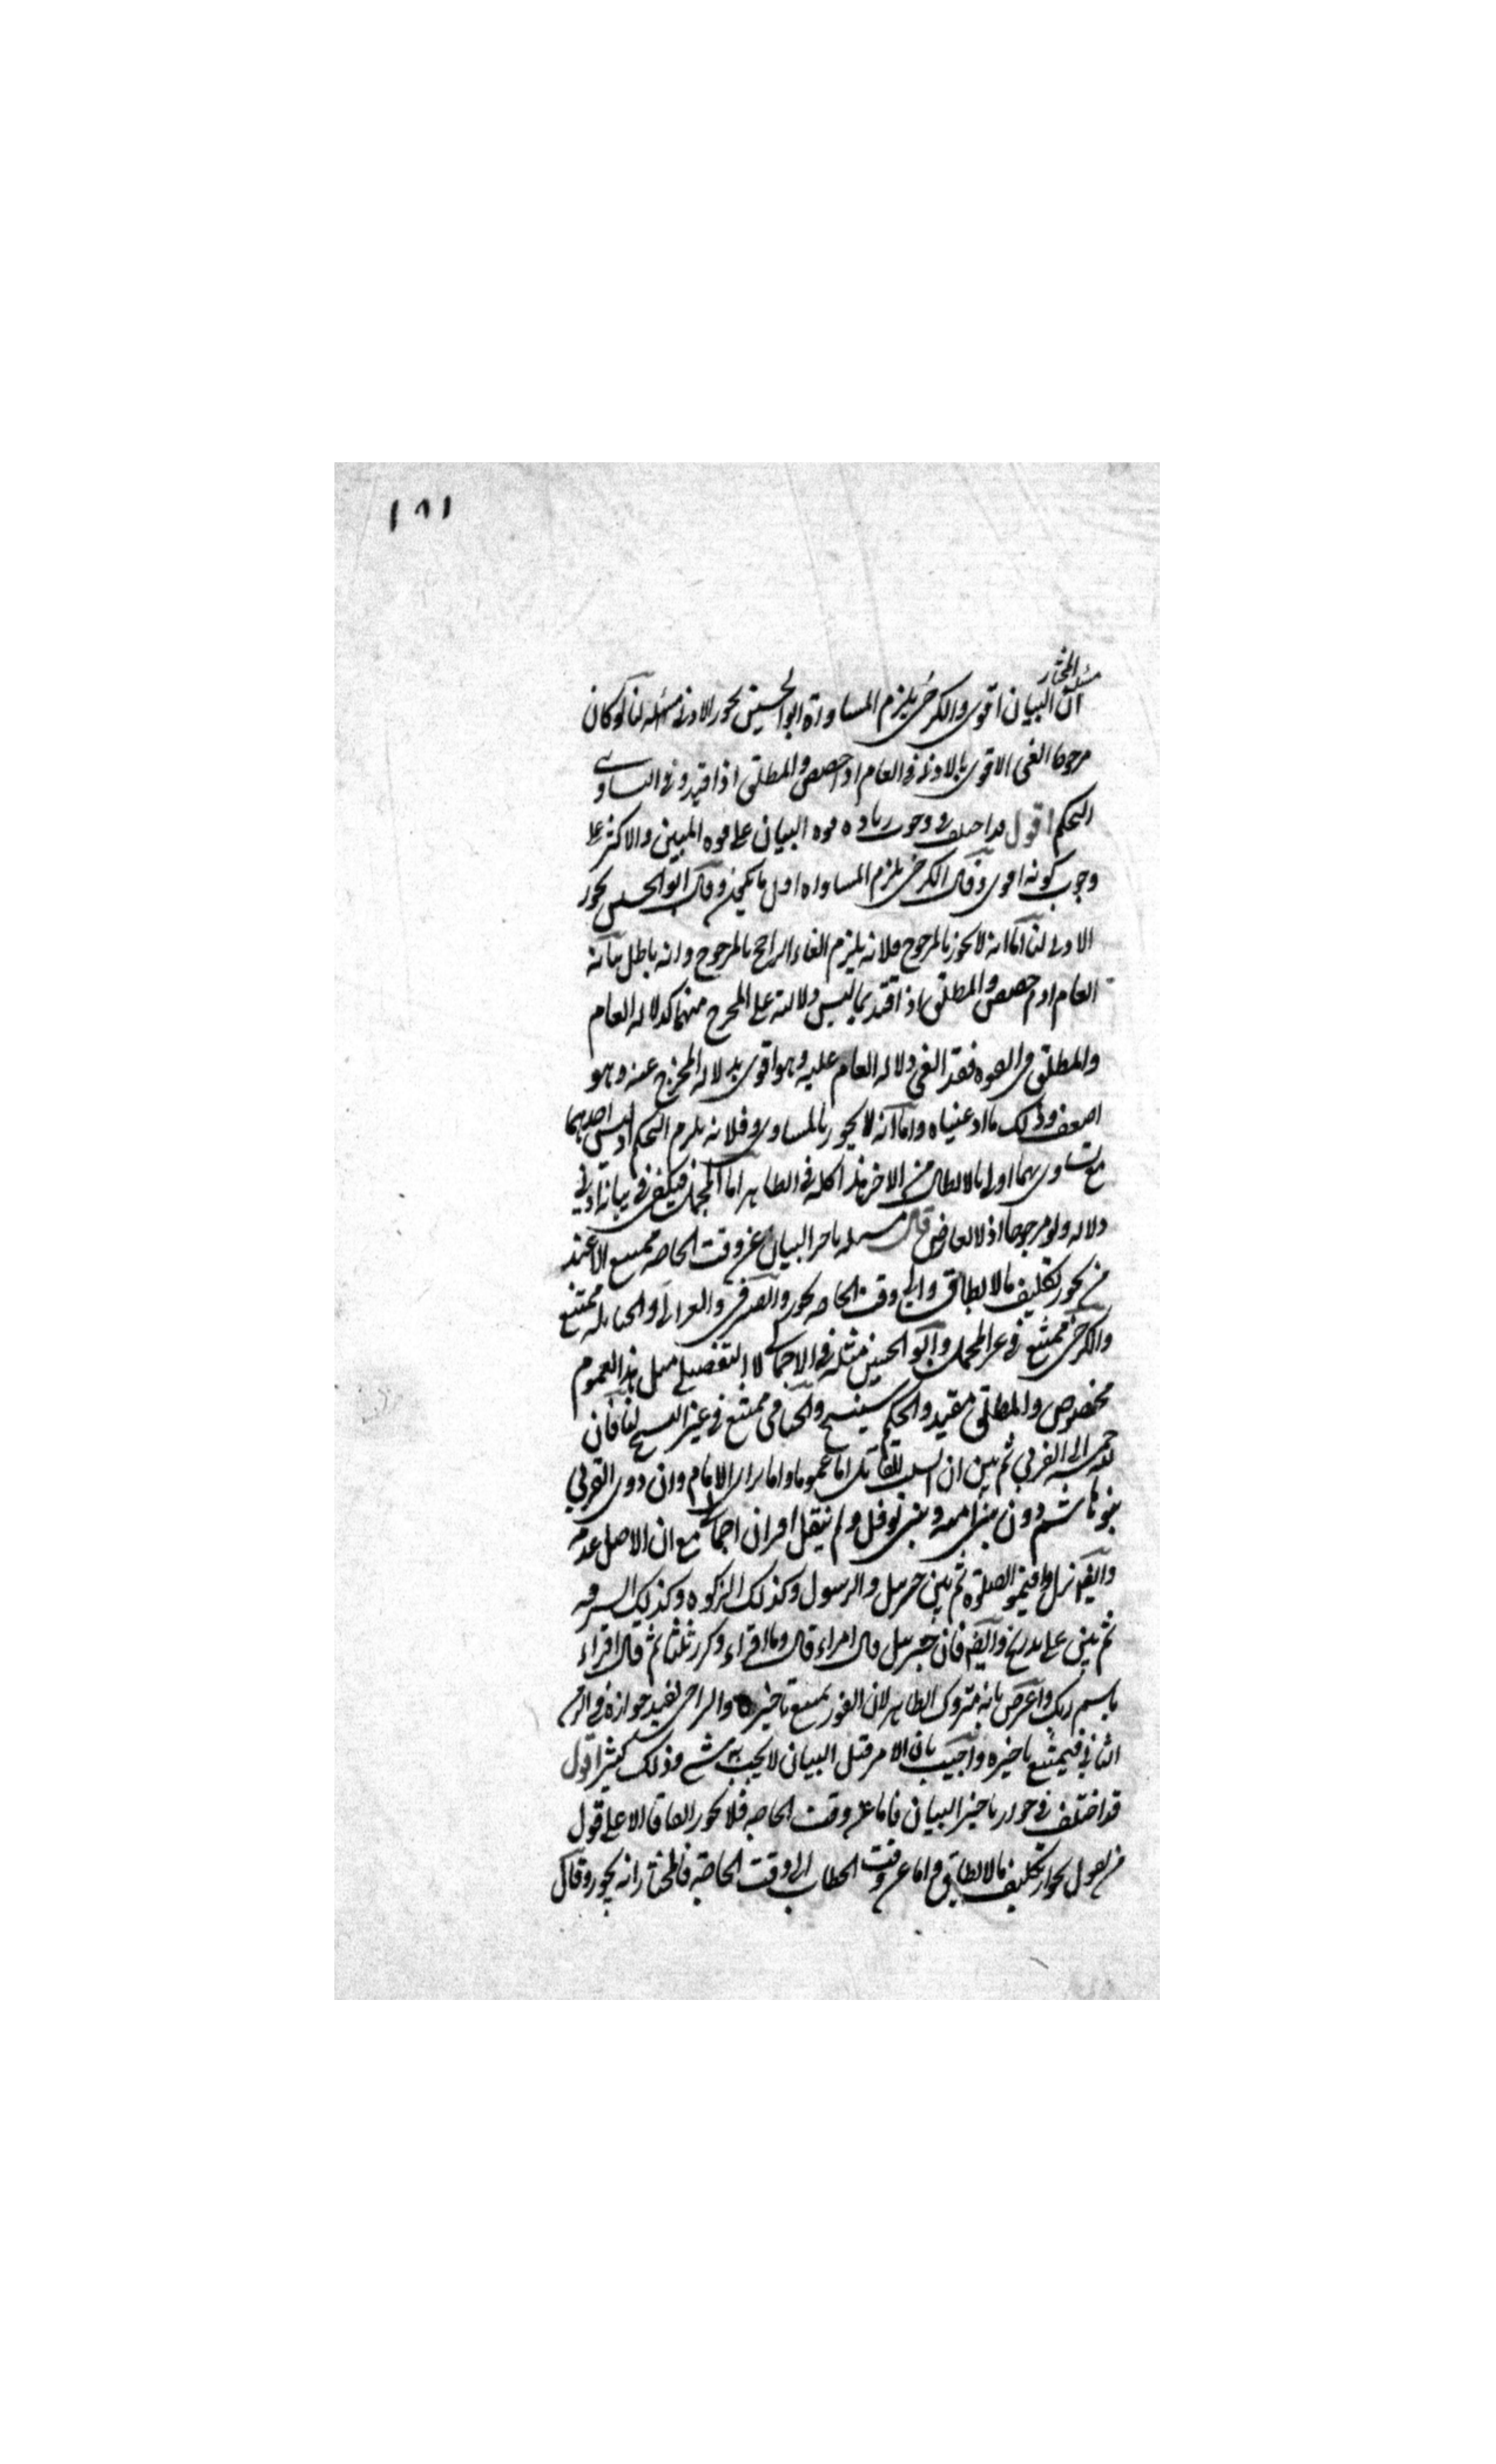 ١٨١
مسئلة المختار
ان البيان اقوى والكرخى يلزم المساواة ابو الحسين بجوز الادنى لنا لو كان
مرجوحا الغى الاقوى بالادنى فى العام اذا خصص والمطلق اذا قيد وفى التساوى
التحكم اقول قد اختلف فى وجوب زيادة قوه البيان على قوه المبين والاكثر على
وجوب كونه اقوى وقال الكرخى يلزم المساواه اقل ما يمكن وقال ابو الحسين بجوز
الادنى لنا اما انه لا يجوز بالمرجوح فلانه يلزم الغاء الراجح بالمرجوح وانه باطل بيانه
العام اذا خصص والمطلق اذا قيد بما ليس دلالته على المخرج منهما كدلاله العام
والمطلق فى القوه فقد الغى دلاله العام عليه وهو اقوى بدلاله المخرج عنه وهو
اضعف وذلك ما ادعيناه واما انه لا يجوز بالمساوى فلانه يلزم التحكم اذ ليس احدهما
مع تساويهما اولى بالابطال من الاخر هذا كله فى الظاهر اما المجمل فيكفى فى بيانه ادنى
دلاله ولو مرجوحا اذ لا تعارض قال مسئله تاخير البيان عن وقت الحاجه ممتنع الا عند
من يجوز تكليف ما لا يطاق والى وقت الحاجه يجوز والصيرفى والحنابله ممتنع
والكرخى ممتنع فى غير المجمل وابو الحسين مثله فى الاجمالى لا التفصيلى مثل هذا العموم
مخصوص والمطلق مقيد والحكم سينسخ والجبائى ممتنع فى غير النسخ لنا فان
لله خمسه الى القربى ثم بين ان السلب للقاتل اما عموما واما براى الامام وان ذوى القربى
بنو هاشم دون بنى اميه وبنى نوفل ولم ينقل اقتران اجمالى مع ان الاصل عدمه
وايضا نزل واقيموا الصلوة ثم بين جبريل والرسول وكذلك الزكوه وكذلك السرقه
ثم بين على تدريج وايضا فان جبريل قال اقراء قال وما اقراء وكرر ثلثا ثم قال اقراء
باسم ربك واعترض بانه متروك الظاهر لان الفور يمتنع تاخيره والتراخى يفيد جوازه فى الزمن
الثانى فيمتنع تاخيره واجيب بان الامر قبل البيان لا يجب به شىء وذلك كثير اقول
قد اختلف فى جواز تاخير البيان فاما عن وقت الحاجه فلا يجوز اتفاقا الا على قول
من يقول بجواز تكليف ما لا يطاق واما عن وقت الخطاب الى وقت الحاجة فالمختار انه يجوز وقال